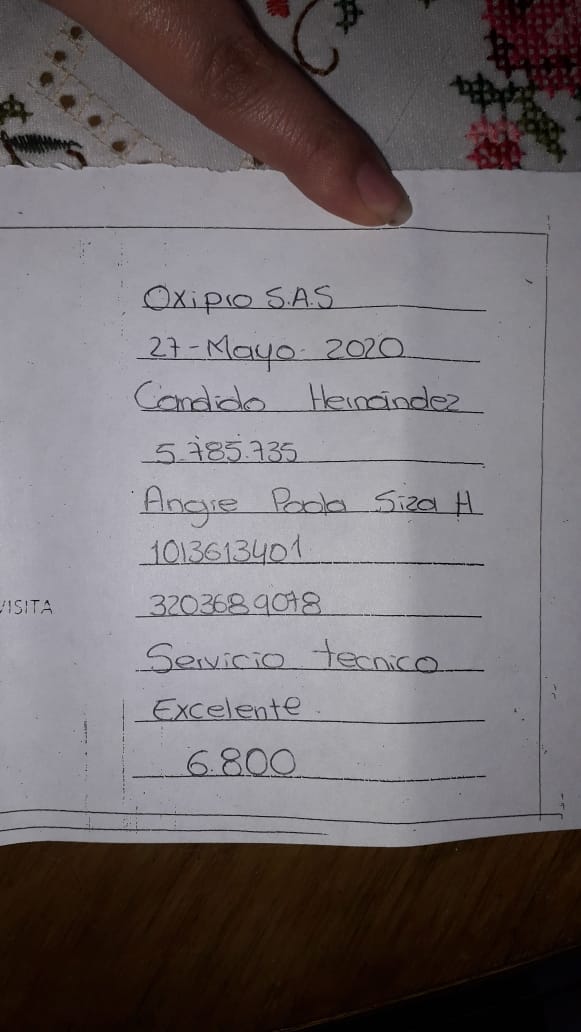 Oxipro S.A.S
27-Mayo-2020
Candido Hernández
5.785.735
Angie Paola Siza H
1013613401
VISITA 3203689078
Servicio tecnico
Excelente
6.800